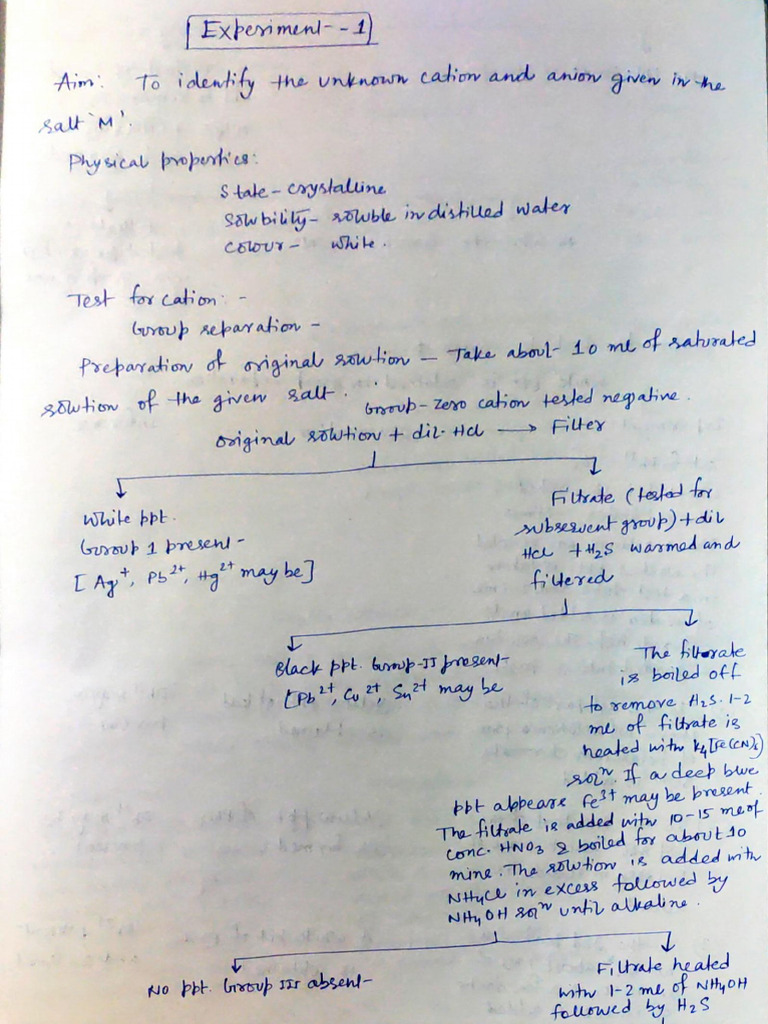 Experiment--1
Aim: To identify the unknown cation and anion given in the
salt 'M'.
Physical properties:
State - crystalline
Solubility - soluble in distilled water
Colour - white.
Test for cation: -
Group separation -
Preparation of original solution - Take about 10 ml of saturated
solution of the given salt.
Group-Zero cation tested negative.
Original solution + dil. HCl → Filter
White ppt.
Group 1 present -
[Ag⁺, Pb²⁺, Hg²⁺ may be]
Filtrate (tested for
subsequent group) + dil
HCl + H₂S warmed and
filtered
Black ppt. Group-II present
[Pb²⁺, Cu²⁺, Sn²⁺ may be
The filtrate
is boiled off
to remove H₂S. 1-2
ml of filtrate is
heated with K₄[Fe(CN)₆]
solⁿ. If a deep blue
ppt appears Fe³⁺ may be present.
The filtrate is added with 10-15 ml of
conc. HNO₃ & boiled for about 10
mins. The solution is added with
NH₄Cl in excess followed by
NH₄OH solⁿ until alkaline.
No ppt. Group III absent -
Filtrate heated
with 1-2 ml of NH₄OH
followed by H₂S